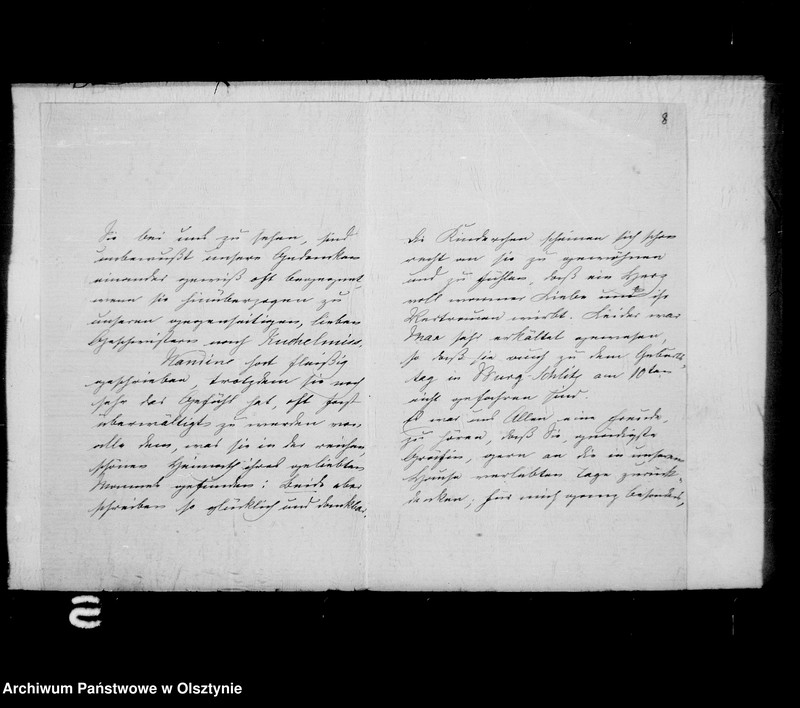 8
Sie bei uns zu sehen, sind
unbewußt unsere Gedanken
einander gewiß oft begegnet
wenn sie hinüberzogen zu
unseren gegenseitigen, lieben
Geschwistern nach Kuchelmiss.
Nandine hat fleißig
geschrieben, trotzdem sie noch
sehr das Gefühl hat, oft fast
überwältigt zu werden von
alle dem, was sie in der reichen,
schönen Heimath ihres geliebten
Mannes gefunden: Beide aber
schreiben so glücklich und dankbar.
die Kinderchen scheinen sich schon
recht an sie zu gewöhnen
und zu fühlen, daß ein Herz
voll warmer Liebe um ihr
Vertrauen wirbt. Leider war
sehr erkältet gewesen,
so daß sie auch zu dem Geburts-
tag in Burg-Schlitz am 10ten
nicht gefahren sind.
Es war uns Allen eine Freude,
zu hören, daß Sie, gnädigste
Gräfin, gern an die in unserem
Hause verlebten Tage zurück-
denken; für mich ganz besonders,
Archiwum Państwowe w Olsztynie